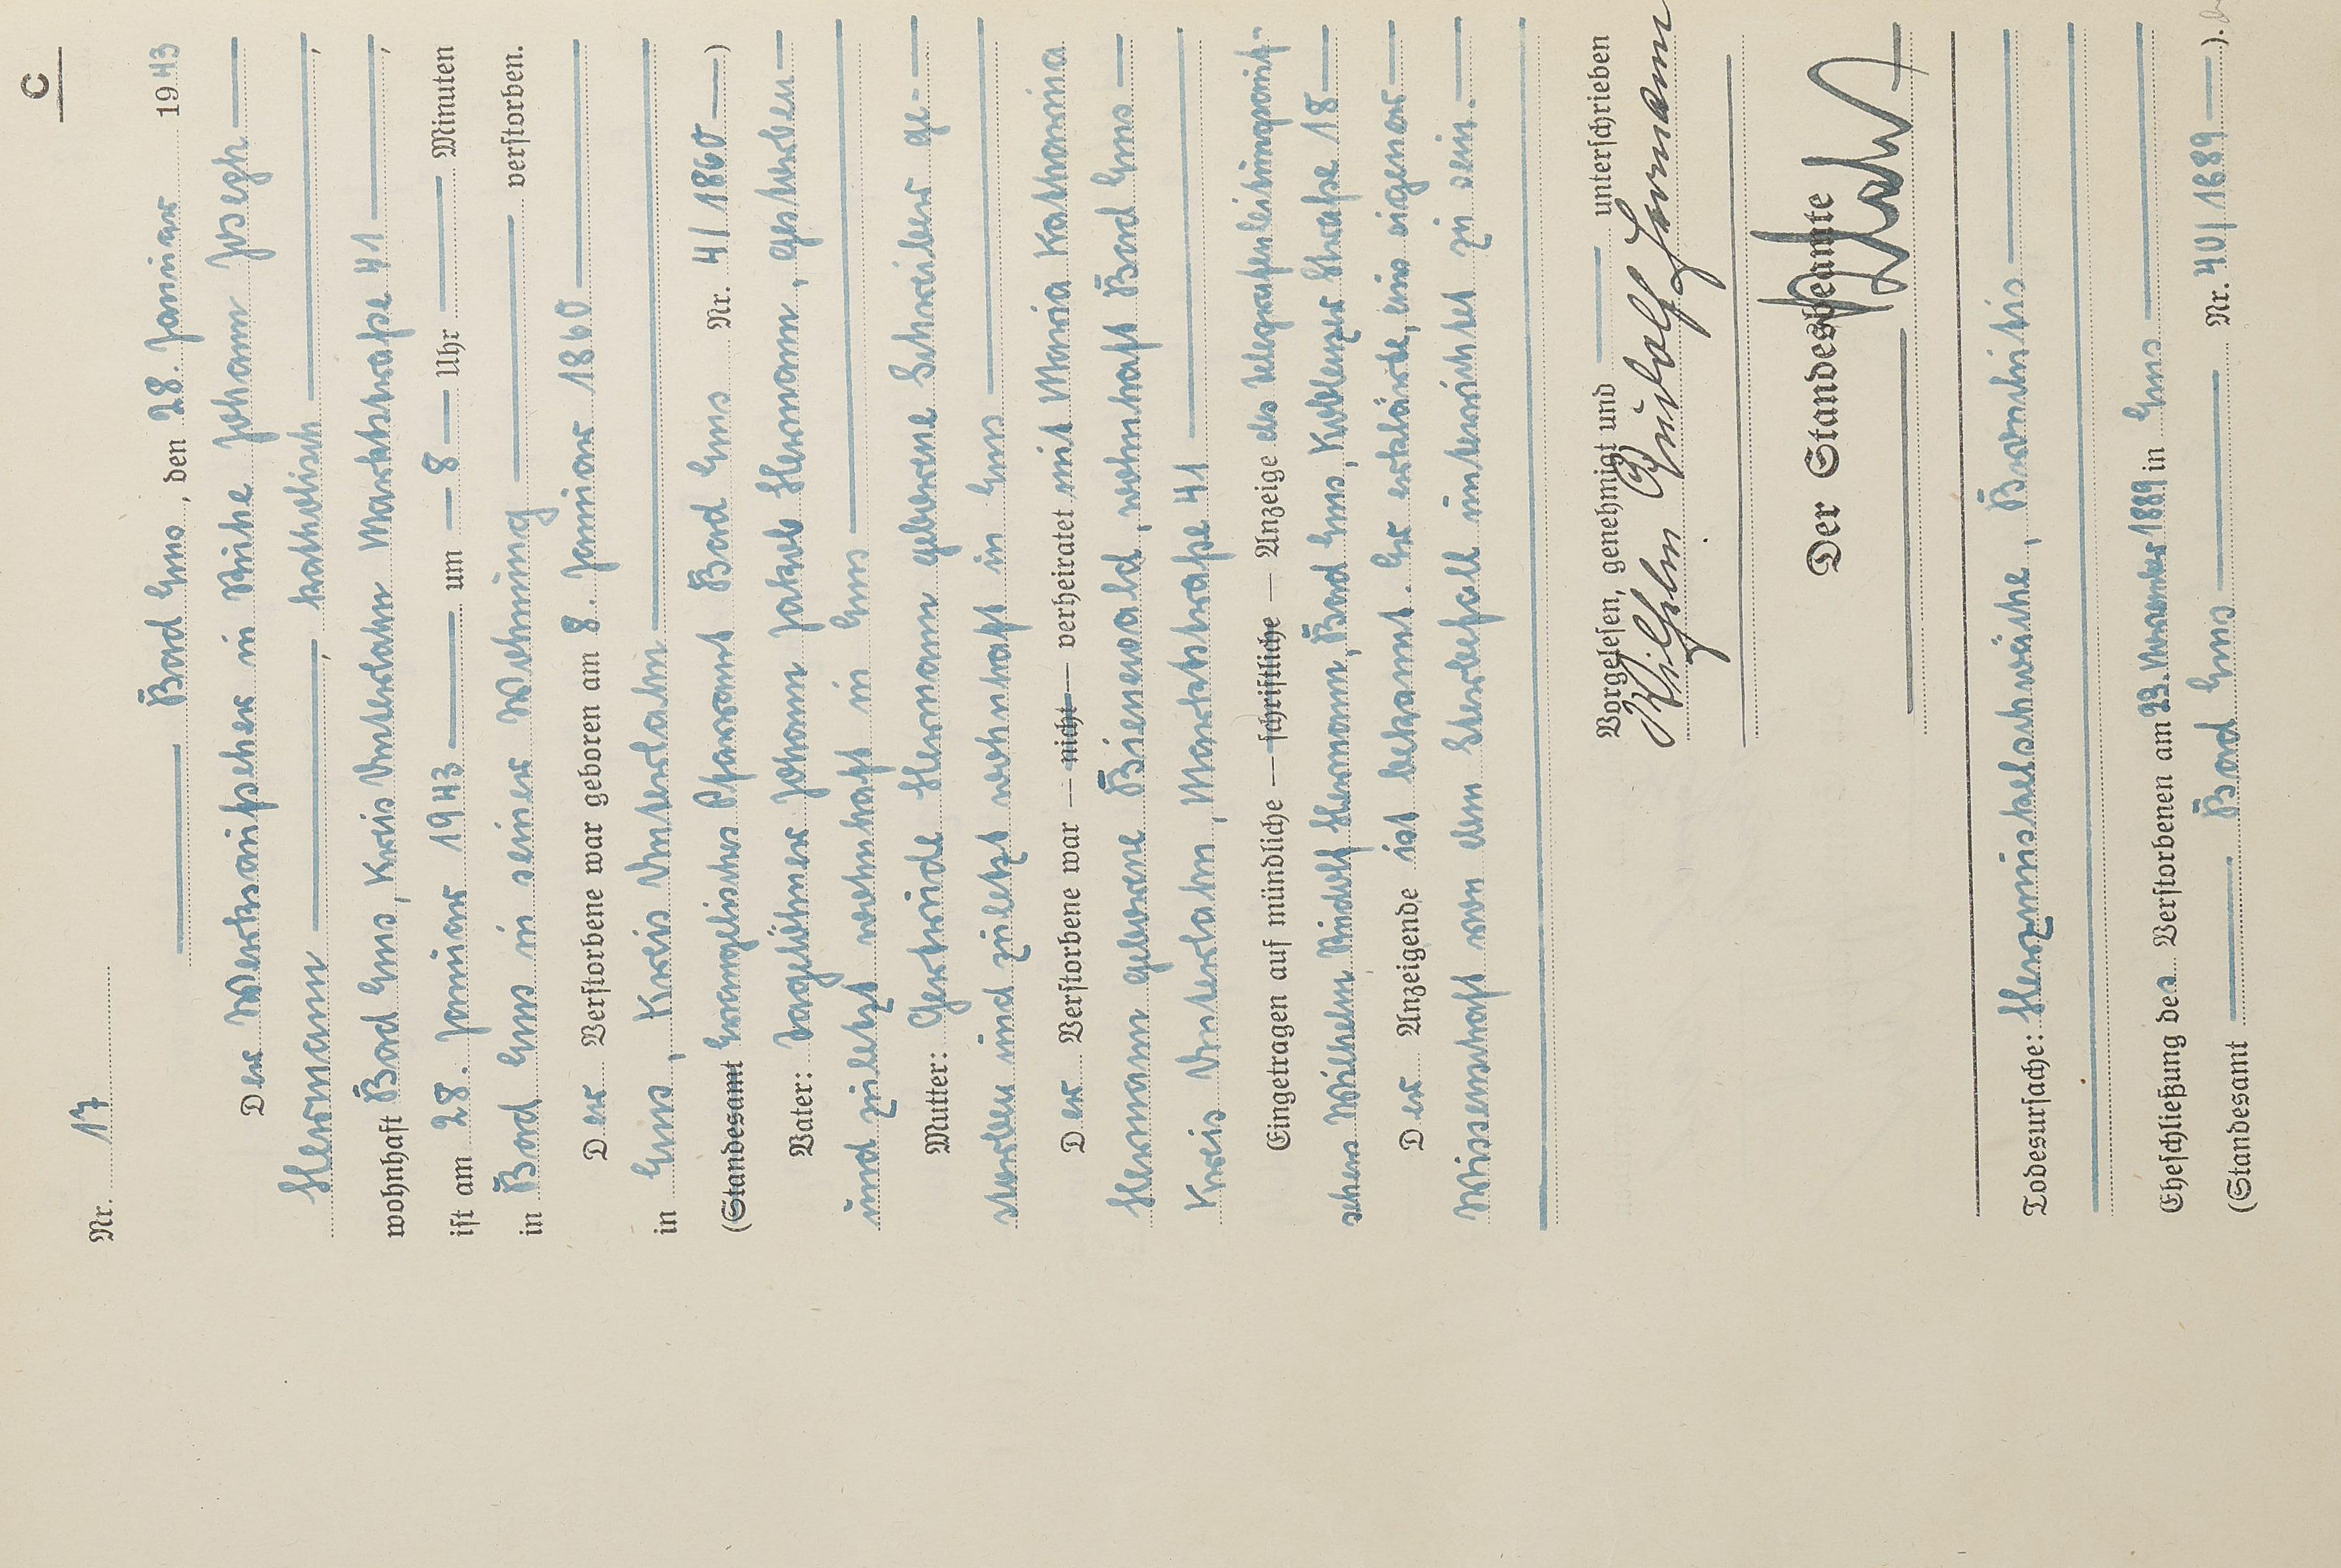 C
Nr. 17
Bad Ems, den 28. Januar 1943
Der Werksaufseher in Ruhe Johann Joseph
Hermann, katholisch,
wohnhaft Bad Ems, Kreis Unterlahn Marktstraße 41,
ist am 28. Januar 1943 um 8 Uhr Minuten
in Bad Ems in seiner Wohnung verstorben.
Der Verstorbene war geboren am 8. Januar 1860
in Ems, Kreis Unterlahn
(Standesamt Evangelisches Pfarramt Bad Ems Nr. 4/1860)
Vater: Tagelöhner Johann Jakob Hermann, gestorben
und zuletzt wohnhaft in Ems
Mutter: Gertrude Hermann geborene Schreiber ge-
storben und zuletzt wohnhaft in Ems
Der Verstorbene war — nicht — verheiratet mit Maria Katharina
Hermann geborene Bienewald, wohnhaft Bad Ems
Kreis Unterlahn, Marktstraße 41
Eingetragen auf mündliche — schriftliche — Anzeige des Telegrafenleitungsauf-
sehers Wilhelm Rudolf Hermann, Bad Ems, Koblenzer Straße 18
Der Anzeigende ist bekannt. Er erklärte, aus eigener
Wissenschaft von dem Sterbefall unterrichtet zu sein.
Vorgelesen, genehmigt und unterschrieben
Wilhelm Rudolf Hermann
Der Standesbeamte
Todesursache: Herzmuskelschwäche, Bronchitis
Eheschließung des Verstorbenen am 23. November 1889 in Ems
(Standesamt Bad Ems Nr. 40/1889).